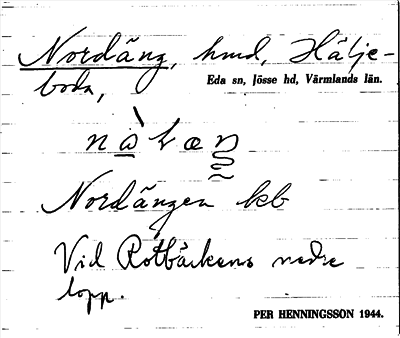 Nordäng, hmd, Hälje-
Eda sn, Jösse hd, Värmlands län.
boda,
Nordängen kb
Vid Rötbäckens nedre
lopp.
PER HENNINGSSON 1944.